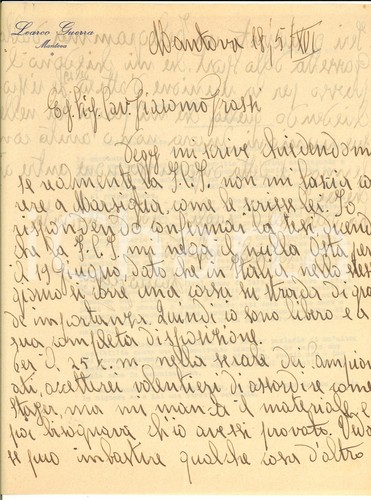 Learco Guerra
Mantova
Mantova 18/5/XVI
Eg. Sig. Cav. Giacomo Grassi
Degy mi scrive chiedendomi
se realmente la F.C.I. non mi lascia cor
rere a Marsiglia, come le scrisse lei. Io
rispondendo confermai la tesi dicendo
che la F.C.I. mi nega il nulla osta per
il 19 giugno, dato che in Italia nello stesso
giorno si corre una corsa su strada di gran
de importanza. Quindi io sono libero e a
sua completa disposizione.
Per i 25 k.m nella serate dei Campion
ati, accetterei volentieri di assordire come
Stayer, ma mi manca il materiale e
poi bisognava ch'io avessi provato. Veda
se può imbastire qualche cosa d'altro